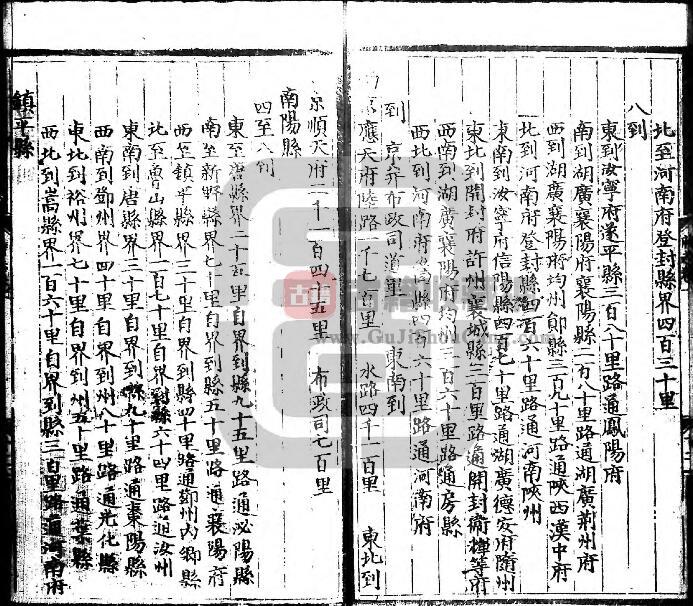 北至河南府登封縣界四百三十里
八到
東到汝寧府遂平縣三百八十里路通鳳陽府
南到湖廣襄陽府襄陽縣二百八十里路通湖廣荊州府
西到湖廣襄陽府均州鄖縣三百九十里路通陝西漢中府
北到河南府登封縣四百六十里路通河南陝州
東南到汝寧府信陽縣四百七十里路通湖廣德安府隨州
東北到開封府許州襄城縣三百里路通開封衛輝等府
西南到湖廣襄陽府均州三百六十里路通房縣
西北到河南府嵩縣四百六十里路通河南府
到 京并布政司道里 東南到
應天府陸路一千七百里 水路四千一百里 東北到
京順天府二千一百四十五里 布政司七百里
南陽縣
四至八到
東至唐縣界二十五里自界到縣九十五里路通泌陽縣
南至新野縣界七十里自界到縣五十里路通襄陽府
西至鎮平縣界三十里自界到縣四十里路通鄧州內鄉縣
北至魯山縣界一百七十里自界到縣六十四里路通汝州
東南到唐縣界三十里自界到縣九十里路通棗陽縣
西南到鄧州界四十里自界到州八十里路通光化縣
東北到裕州界七十里自界到州五十里路通葉縣
西北到嵩縣界一百六十里自界到縣三百里路通河南府
鎮平縣
古籍